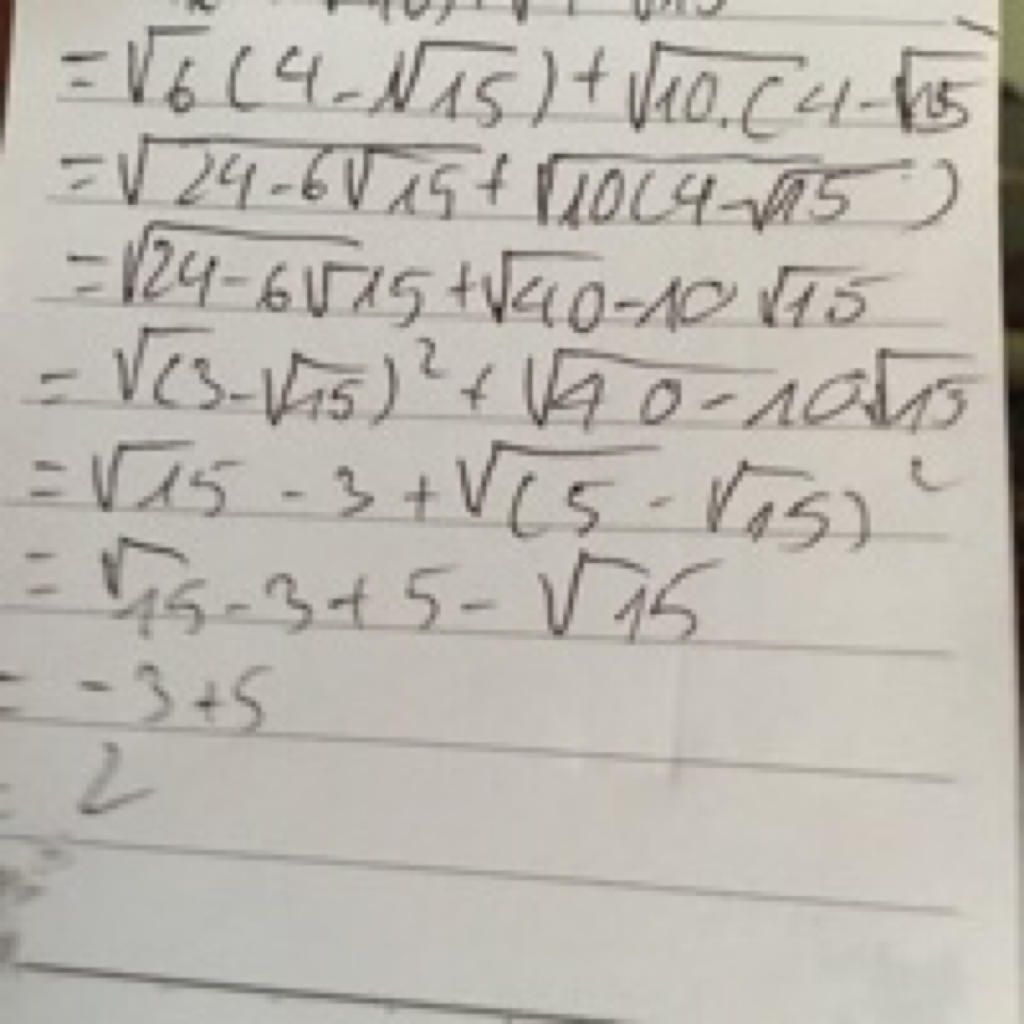 = √6(4-√15) + √10.(4-√15
= √24-6√15 + √10(4-√15)
= √24-6√15 + √40-10√15
= √(3-√15)² + √40-10√15
= √15 - 3 + √(5-√15)²
= √15 - 3 + 5 - √15
= -3+5
= 2